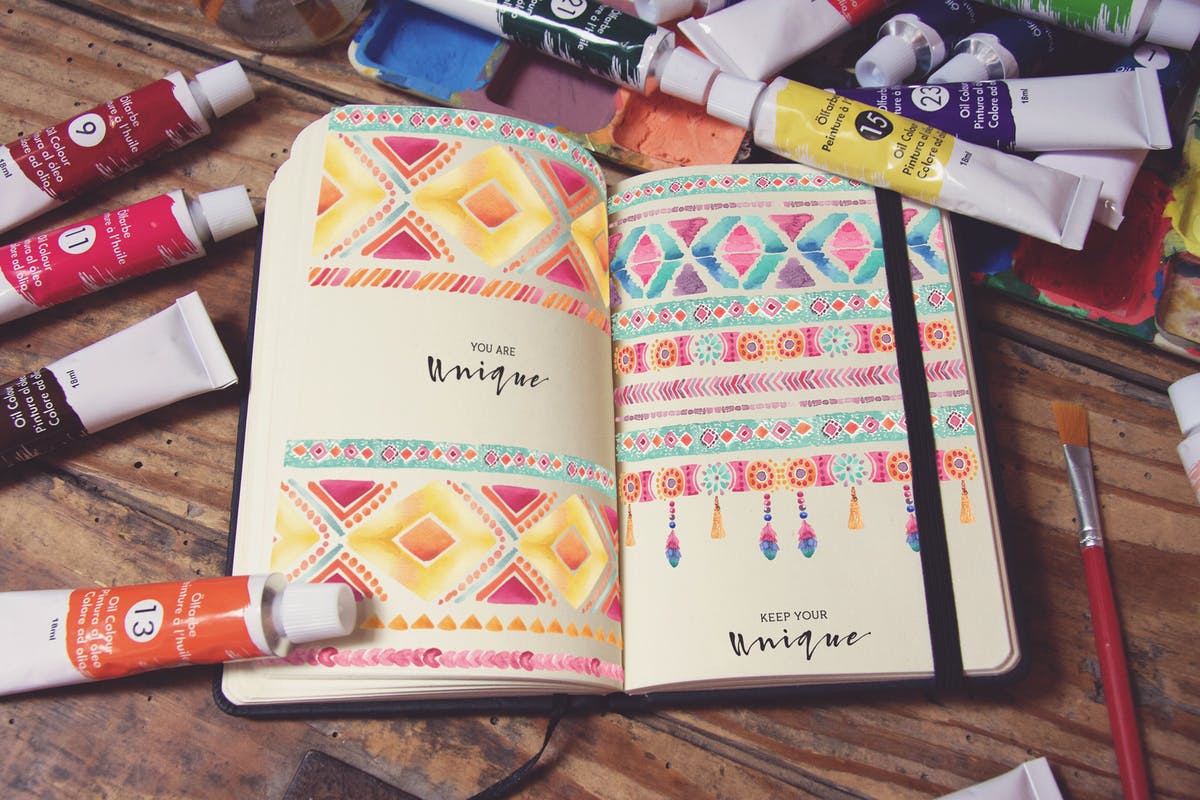 9
Ölfarbe
Peinture à l'huile
Oil Colour
18ml
11
Ölfarbe
Oil Colour
Pintura al óleo
Colore ad olio
18ml
Oil Colour
Pintura al óleo
Colore ad olio
18ml
21
15
Ölfarbe
Peinture à l'huile
Oil Colour
Pintura al óleo
Colore ad olio
18ml
23
Oil Colour
Pintura al óleo
Colore ad olio
18ml
YOU ARE
Unique
KEEP YOUR
Unique
13
Ölfarbe
Peinture à l'huile
Oil Colour
Pintura al óleo
Colore ad olio
18ml